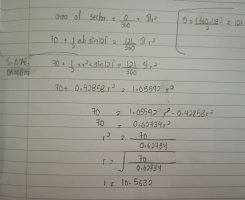 area of sector = θ/360 × πr²
θ = (360-118)/2 = 121
70 + 1/2 ab sin121 = 121/360 πr²
70 + 1/2 × r² × sin121 = 121/360 πr²
70 + 0.42858 r² = 1.05592 r²
70 = 1.05592 r² - 0.42858 r²
70 = 0.62734 r²
r² = 70/0.62734
r = √70/0.62734
r = 10.5632